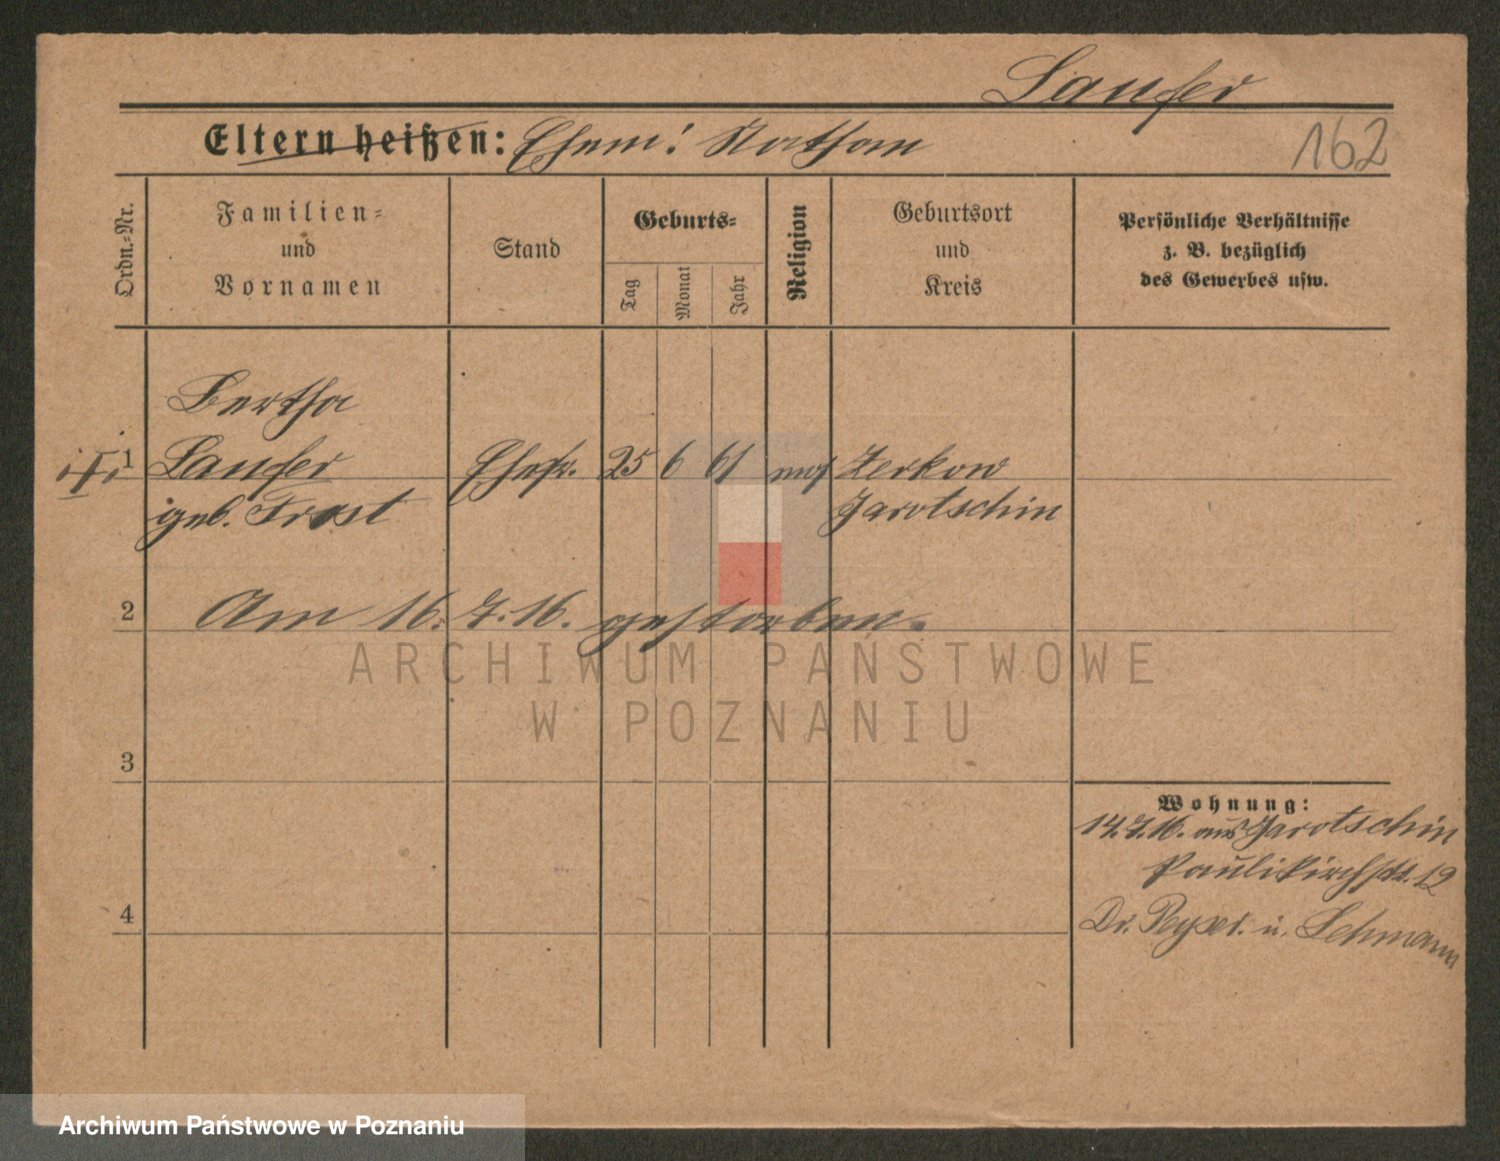 Laufer
Eltern heißen: Ehem: Nathan
162
Ordn.=Nr.
Familien=
und
Vornamen
Stand
Geburts=
Tag
Monat
Jahr
Religion
Geburtsort
und
Kreis
Persönliche Verhältnisse
z. B. bezüglich
des Gewerbes usw.
Bertha
1 Laufer Ehefr. 25 6 61 mos Zerkow
geb. Frost Jarotschin
2 Am 16. 7. 16. gestorben.
ARCHIWUM PAŃSTWOWE
W POZNANIU
3
Wohnung:
14.7.16. aus Jarotschin
Paulikirchstr. 12
4
Dr. Peyser. u. Lehmann
Archiwum Państwowe w Poznaniu